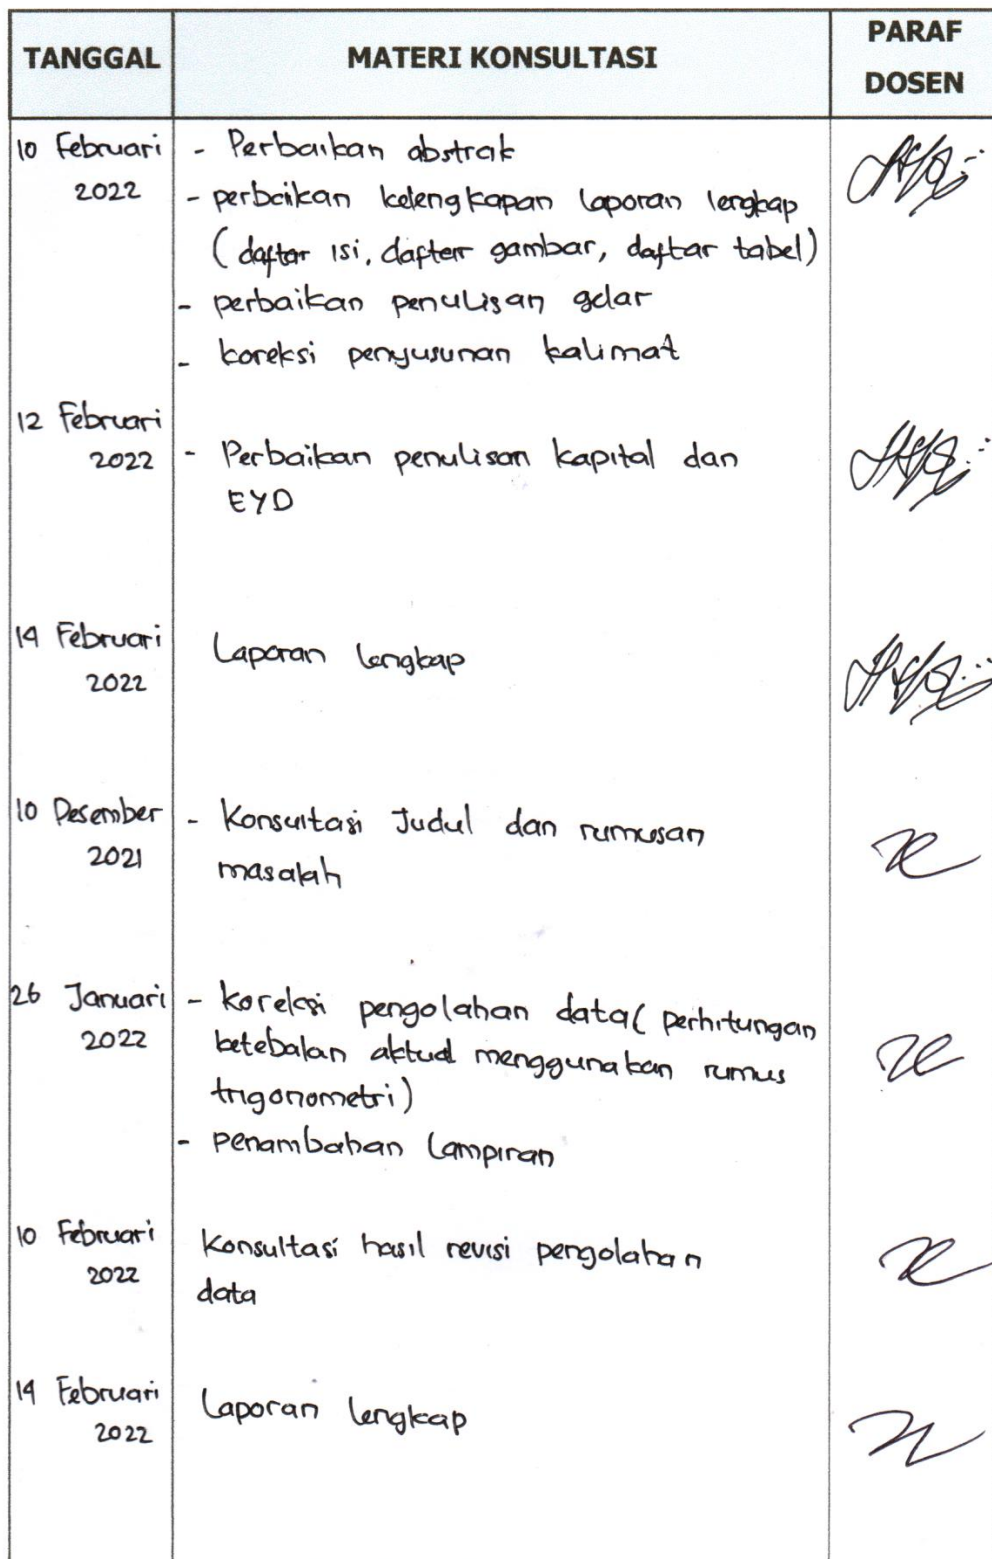 TANGGAL
MATERI KONSULTASI
PARAF
DOSEN
10 Februari
2022
- Perbaikan abstrak
- perbaikan kelengkapan laporan lengkap
(daftar isi, daftar gambar, daftar tabel)
- perbaikan penulisan gelar
- koreksi penyusunan kalimat
12 Februari
2022
- Perbaikan penulisan kapital dan
EYD
14 Februari
2022
Laporan lengkap
10 Desember
2021
- Konsultasi Judul dan rumusan
masalah
26 Januari
2022
- Koreksi pengolahan data (perhitungan
ketebalan aktual menggunakan rumus
trigonometri)
- Penambahan Lampiran
10 Februari
2022
Konsultasi hasil revisi pengolahan
data
14 Februari
2022
Laporan lengkap